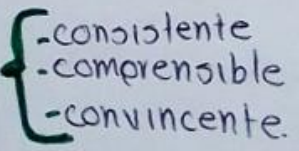 -consistente
-comprensible
-convincente.